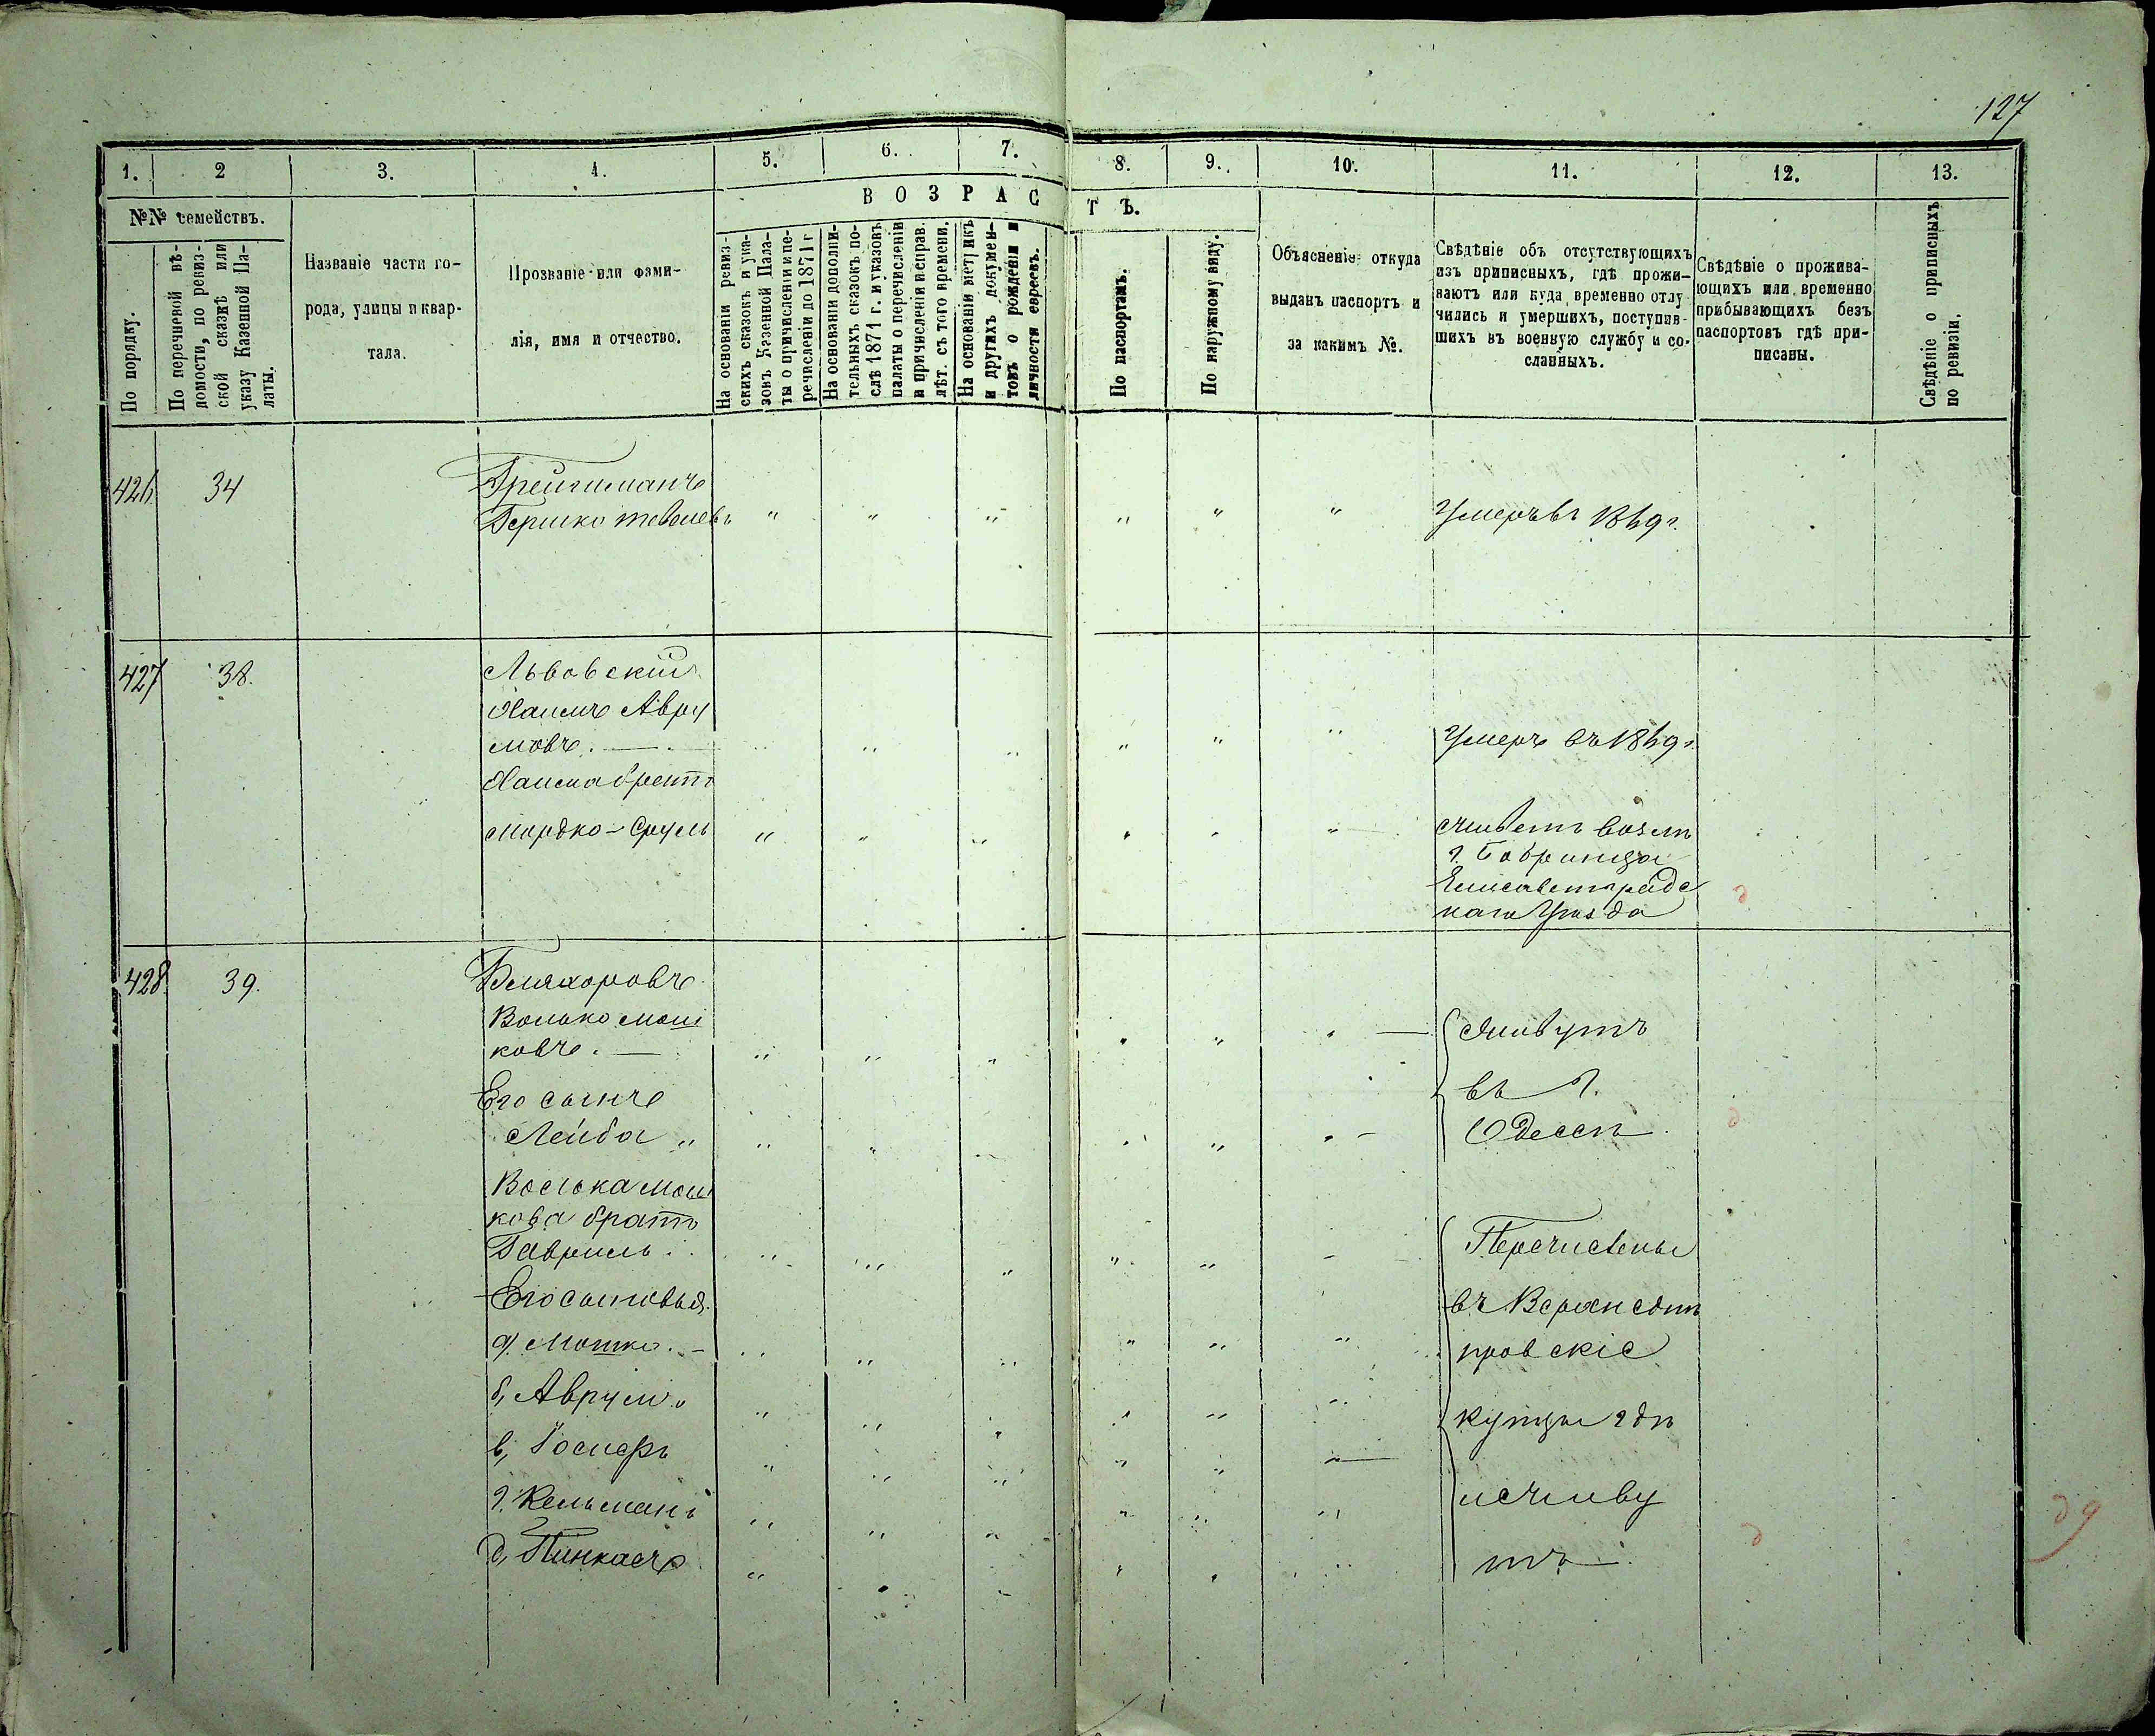 127
1. 2 3. 4. 5. 6. 7. 8. 9. 10. 11. 12. 13.
№№ семействъ.
По порядку.
По перечневой вѣ-
домости, по ревиз-
ской сказкѣ или
указу Казенной Па-
латы.
Названіе части го-
рода, улицы и квар-
тала.
Прозваніе или фами-
лія, имя и отчество.
ВОЗРАСТЪ.
На основаніи ревиз-
скихъ сказокъ и ука-
зовъ Казенной Пала-
ты о причисленіи и пе-
речисленіи до 1871 г
На основаніи дополни-
тельныхъ сказокъ по-
слѣ 1871 г. и указовъ
палаты о перечисленіи
и причисленіи и справ.
лѣт. съ того времени.
На основаніи метрикъ
и другихъ докумен-
товъ о рожденіи и
личности евреевъ.
По паспортамъ.
По наружному виду.
Объясненіе откуда
выданъ паспортъ и
за какимъ №.
Свѣдѣніе объ отсутствующихъ
изъ приписныхъ, гдѣ прожи-
ваютъ или куда временно отлу-
чились и умершихъ, поступив-
шихъ въ военную службу и со-
сланныхъ.
Свѣдѣніе о прожива-
ющихъ или временно
прибывающихъ безъ
паспортовъ гдѣ при-
писаны.
Свѣдѣніе о приписныхъ
по ревизіи.
426 34
Гершко Тевелевъ " " " " " " Умеръ въ 1869 г.
427 38.
Львовскій
Хаимъ Авру
мовъ. — " " " " " " Умеръ въ 1869 г.
Хаима братъ
Мордко-Сруль " " " " " " Живетъ возлѣ
г. Бобринца
Елисаветградс
каго Уѣзда
428 39.
Бляхоровъ
Волько Мош
ковъ. — " " " " " " Живутъ
Его сынъ въ г.
Лейба " " " " " " Одессѣ
Волька Мош
кова братъ
Гавриль " " " " " Перечислены
Его сыновья въ Верхнеднѣ
а, Мошко. — " " " " " " провскіе
б, Аврумъ " " " " " " купцы гдѣ
в, Іосифъ " " " " " "
г. Кельманъ " " " " " " и живу
д, Пинкасъ " " " " " " тъ